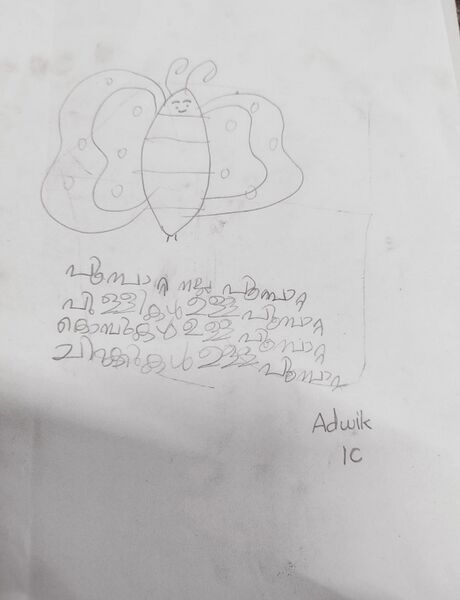 പൂമ്പാറ്റ നല്ല പൂമ്പാറ്റ
പുള്ളികൾ ഉള്ള പൂമ്പാറ്റ
കൊമ്പുകൾ ഉള്ള പൂമ്പാറ്റ
ചിറകുകൾ ഉള്ള പൂമ്പാറ്റ
Adwik
1C